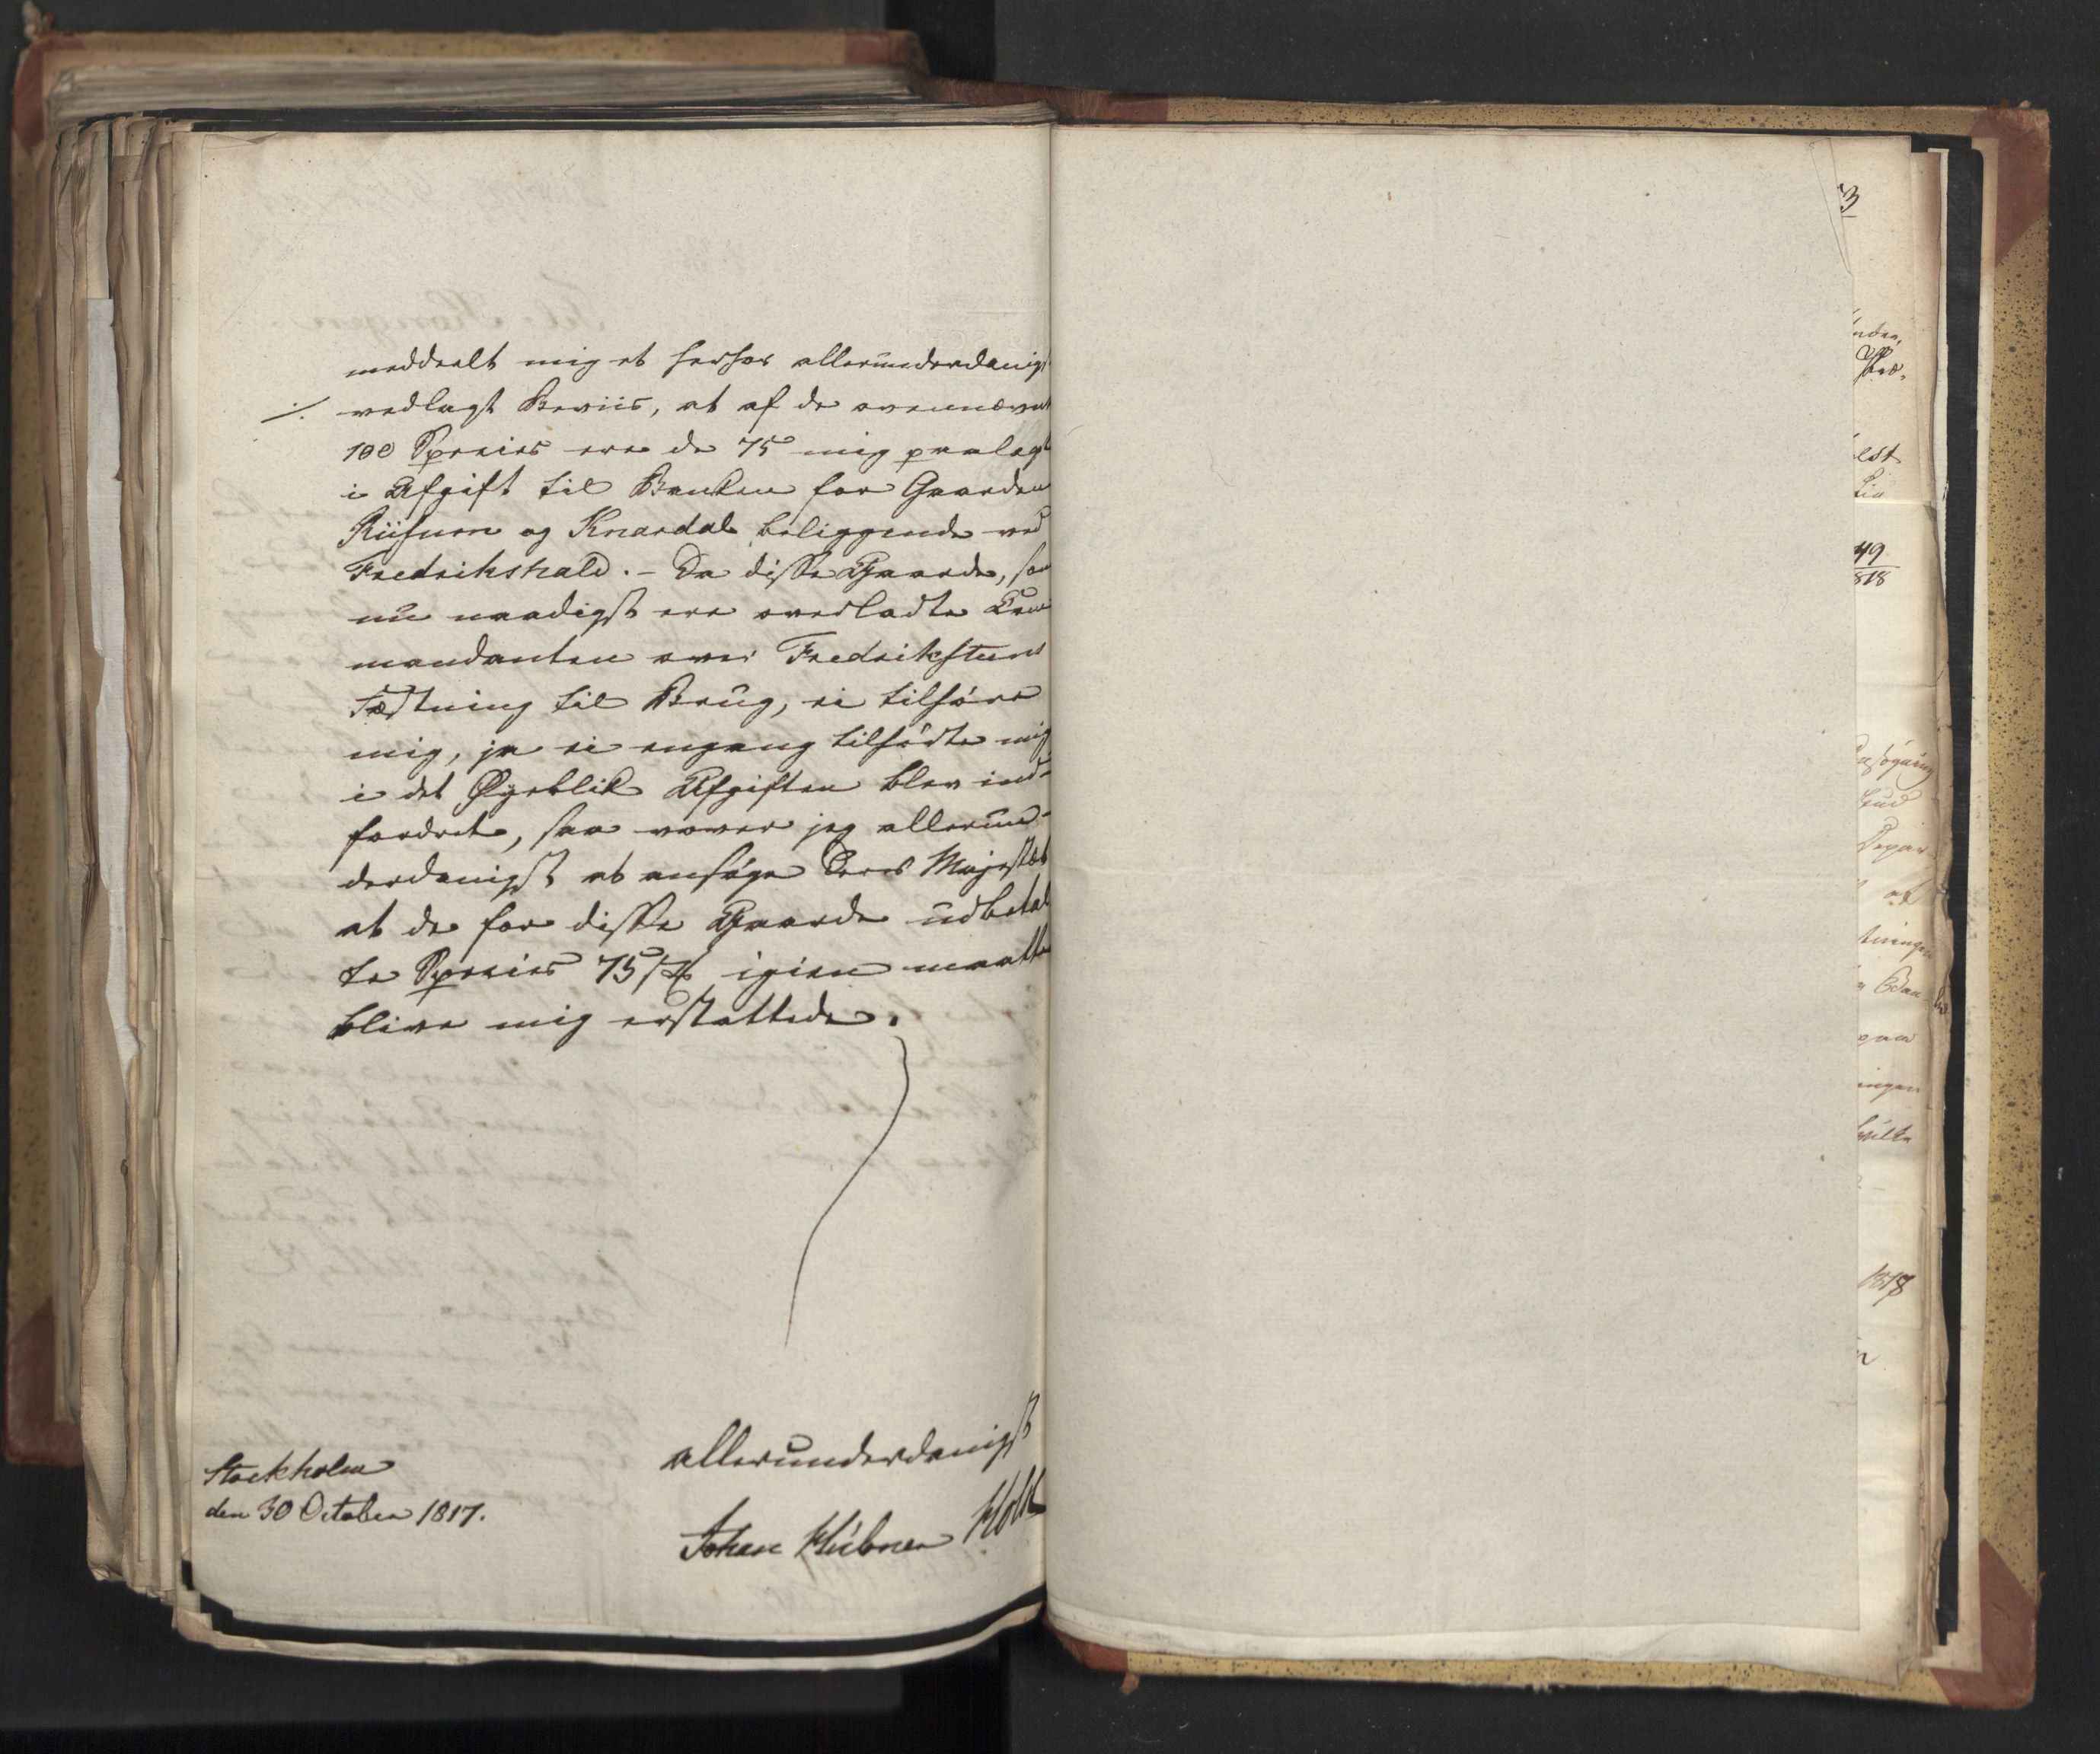 meddeelt mig et herhos allerunderdanigst
·/. vedlagt Beviis, at af de ovennævnte
100 Species ere de 75 mig paalagt
i Afgift til Banken for Gaarden
og Knardal beliggende ved
Fredrikshald. - Da disse Gaarde, som
nu naadigst ere overladte Com
mandanten over Fredrikstens
Fæstning til Brug, ei tilhøre
mig, ja ei engang tilhørte mig
i det Øyeblik Afgiften blev ind-
fordret, saa vover jeg allerun-
derdanigst at ansøge Deres Majestæt
at de for disse Gaarde udbetal
te Species 75 igien maatte
blive mig erstattede.
allerunderdanigst
Stockholm
den 30 October 1817.
Johan Hübner Holst
3
est
49
818
Depar
at
tninge
paa
ingen
hvilke
1818